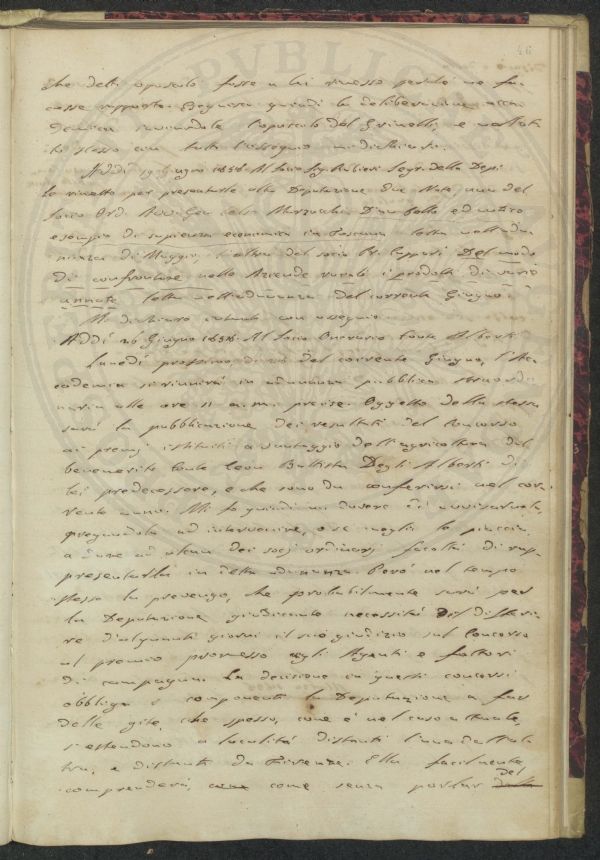 46
che detto opuscolo fosse a lui rimesso perchè ne fa-
cesse rapporto. Eseguisco quindi la deliberazione acca-
demica inviandole l'opuscolo del Grinelli, e
lo stesso con tutto l'ossequio mi dichiaro.
Addì 19 Giugno 1858. Al Socio Sig. Rubieri Segr. della Dep.
Le rimetto per presentarle alla Deputazione due Note, una del
Socio Ord. Avv. Gen. Cels. Marzucchi D'un bello ed antico
esempio di sapienza economica in Toscana letta nell'adu-
nanza di Maggio, l'altra del socio Pr. Cuppari Del modo
di confrontare nelle Aziende rurali i prodotti di varie
annate letta nell'adunanza del corrente Giugno.
Mi dichiaro intanto con ossequio
Addì 26 Giugno 1858. Al Socio Onorario Conte Alberti
Lunedì prossimo 28 del corrente Giugno, l'Ac-
cademia si riunirà in adunanza pubblica straordi-
naria alle ore 11 a.m. precise. Oggetto della stessa
sarà la pubblicazione dei resultati del Concorso
ai premj istituiti a vantaggio dell'agricoltura dal
benemerito Conte Leon Battista Degli Alberti di
lei predecessore, e che sono da conferirsi nel cor-
rente anno. Mi fo quindi un dovere di avvisarnela,
pregandola ad intervenire, o se meglio le piaccia,
a dare ad alcuno dei socj ordinarj facoltà di rap-
presentarla in detta adunanza. Però nel tempo
stesso la prevengo, che probabilmente sarà per
la Deputazione giudicante necessità di differi-
re d'alquanti giorni il suo giudizio sul Concorso
al premio promesso agli Agenti e fattori
di campagna. La decisione in questi concorsi
obbliga i componenti la Deputazione a fare
delle gite, che spesso, come è nel caso attuale,
si estendono a località distanti l'una dall'al-
tra, e distanti da Firenze. Ella facilmente
comprenderà, come senza parlar del